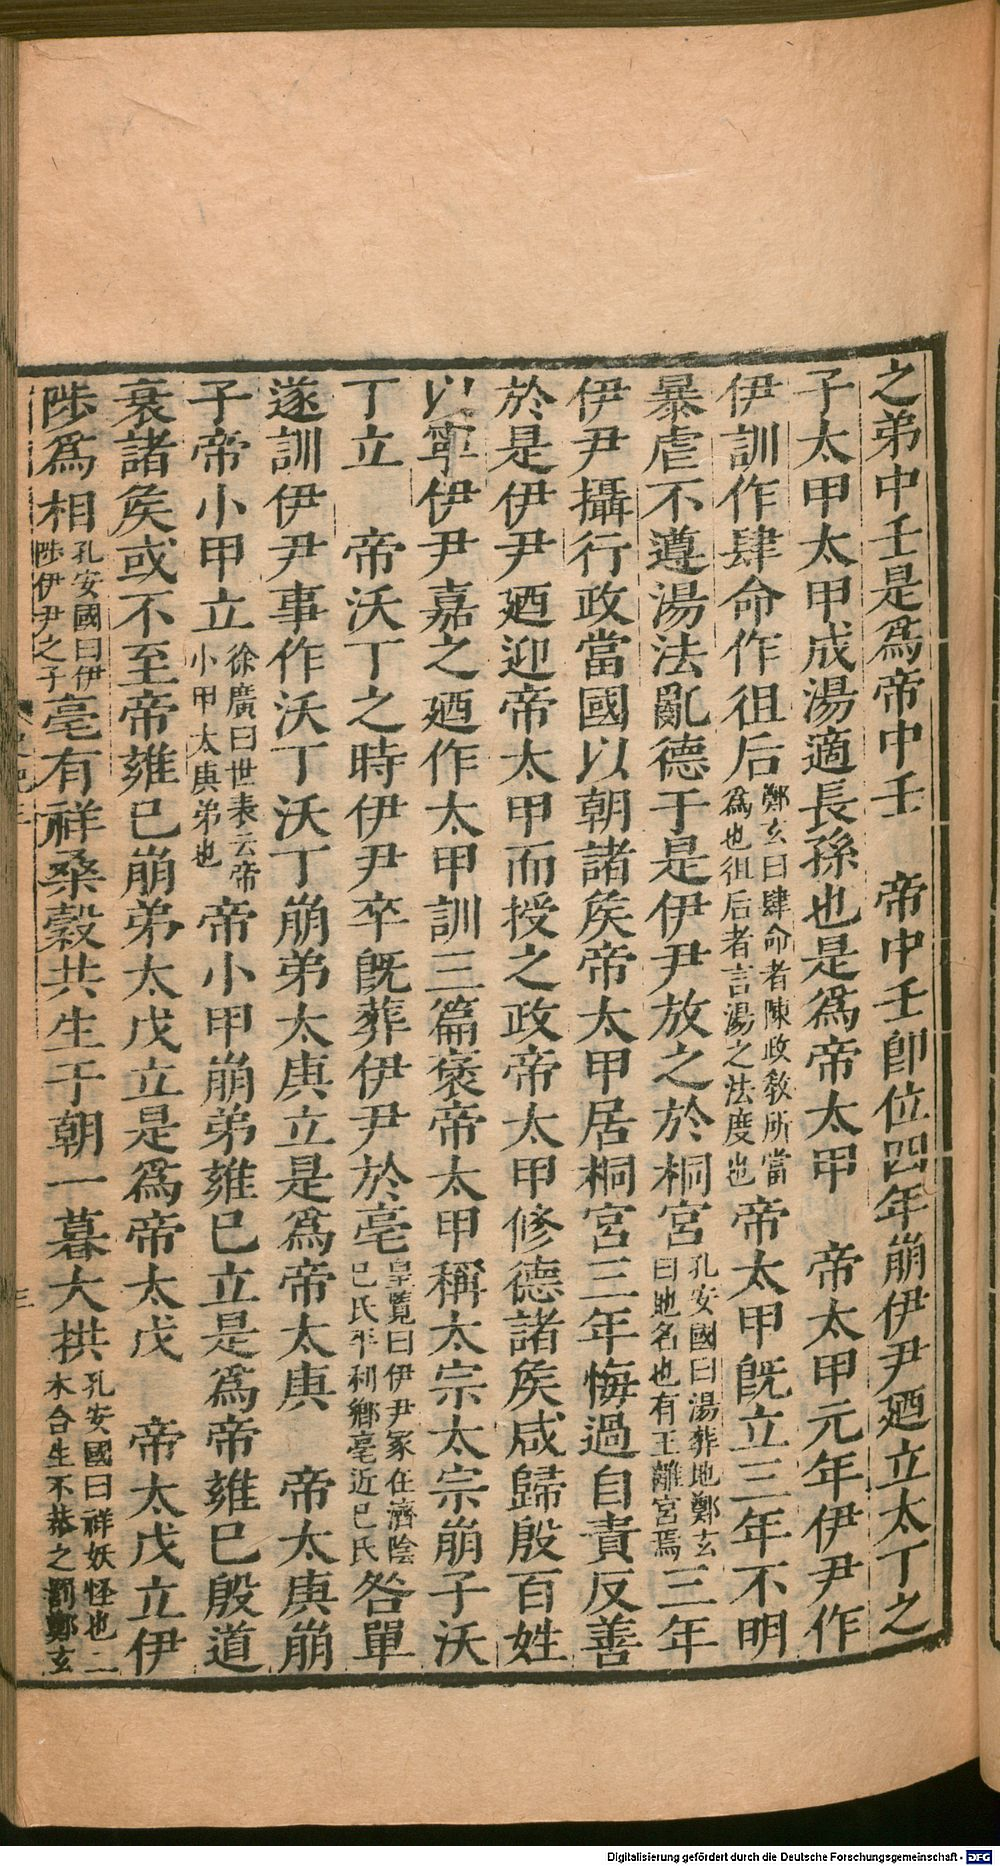 之弟中壬是爲帝中壬　帝中壬卽位四年崩伊尹廼立太丁之
子太甲太甲成湯適長孫也是爲帝太甲　帝太甲元年伊尹作
伊訓作肆命作徂后鄭玄曰肆命者陳政敎所當爲也徂后者言湯之法度也帝太甲旣立三年不明
暴虐不遵湯法亂德于是伊尹放之於桐宮孔安國曰湯葬地鄭玄曰地名也有王離宮焉三年
伊尹攝行政當國以朝諸矦帝太甲居桐宮三年悔過自責反善
於是伊尹廼迎帝太甲而授之政帝太甲修德諸矦咸歸殷百姓
以寧伊尹嘉之廼作太甲訓三篇褒帝太甲稱太宗太宗崩子沃
丁立　帝沃丁之時伊尹卒旣葬伊尹於亳皇覽曰伊尹冢在濟陰巳氏平利鄉亳近巳氏咎單
遂訓伊尹事作沃丁沃丁崩弟太庚立是爲帝太庚　帝太庚崩
子帝小甲立徐廣曰世表云帝小甲太庚弟也帝小甲崩弟雍巳立是爲帝雍巳殷道
衰諸矦或不至帝雍巳崩弟太戊立是爲帝太戊　帝太戊立伊
陟爲相孔安國曰伊陟伊尹之子亳有祥桑穀共生于朝一暮大拱孔安國曰祥妖怪也二木合生不恭之罰鄭玄
三
Digitalisierung gefördert durch die Deutsche Forschungsgemeinschaft - DFG